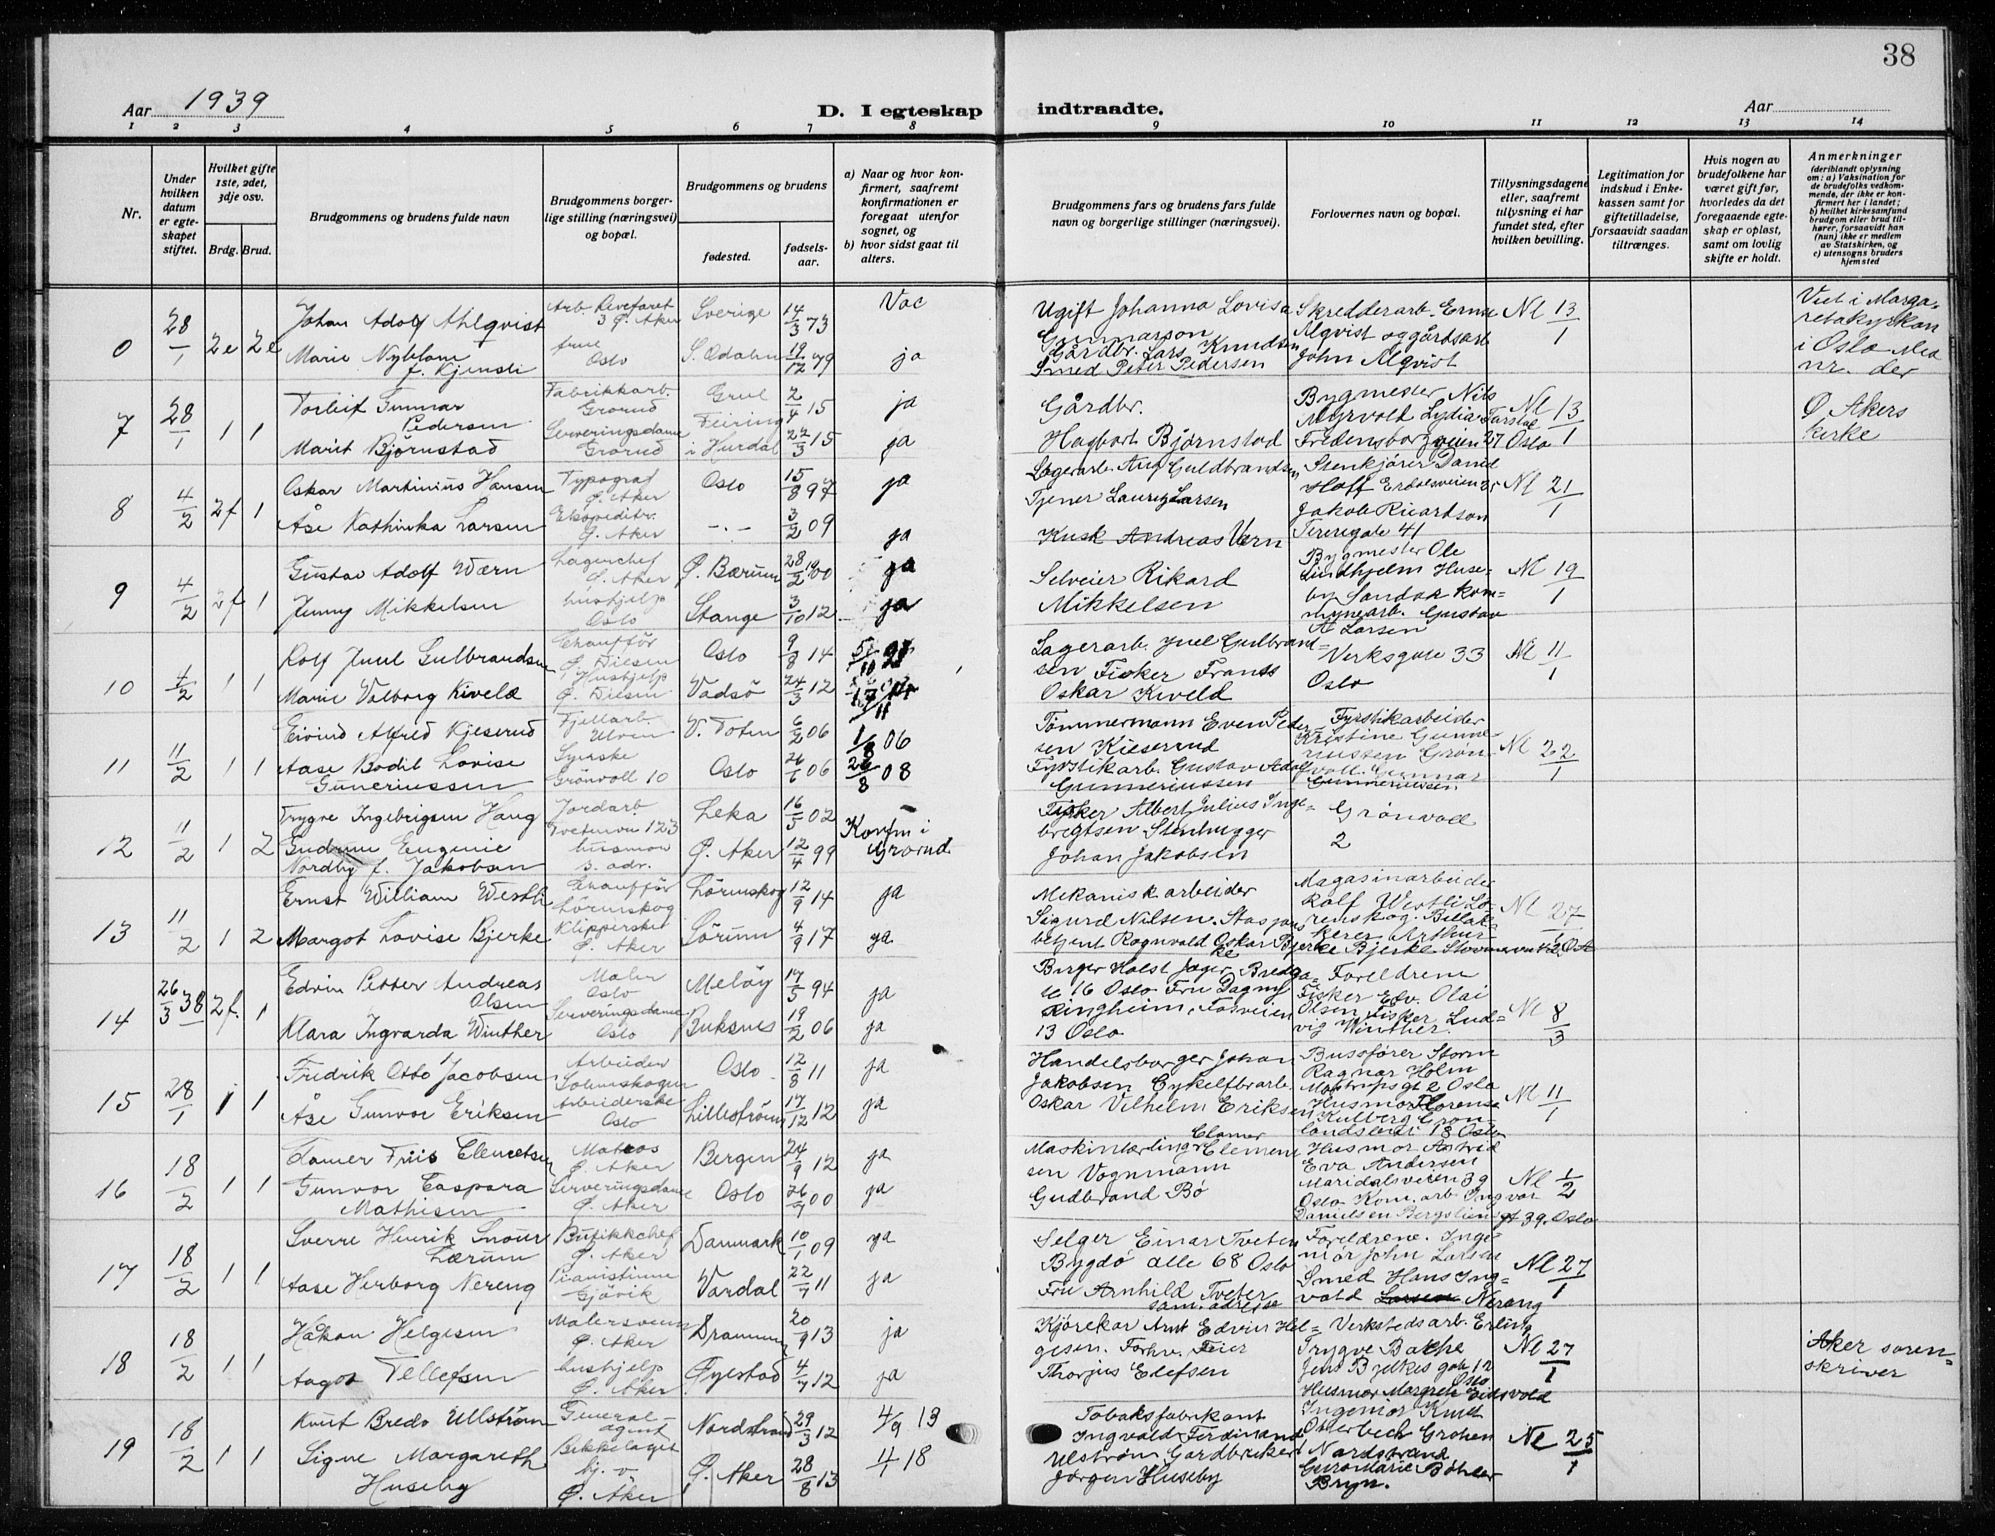 38
Aar 1939
D. I egteskap indtraadte.
Aar
1 2 3 4 5 6 7 8 9 10 11 12 13 14
Nr.
Under hvilken datum er egteskapet stiftet.
Hvilket gifte 1ste, 2det, 3dje osv.
Brdg. Brud.
Brudgommens og brudens fulde navn
Brudgommens borgerlige stilling (næringsvei) og bopæl.
Brudgommens og brudens
fødested.
fødselsaar.
a) Naar og hvor konfirmert, saafremt konfirmationen er foregaat utenfor sognet, og
b) hvor sidst gaat til alters.
Brudgommens fars og brudens fars fulde navn og borgerlige stillinger (næringsvei).
Forlovernes navn og bopæl.
Tillysningsdagene eller, saafremt tillysning ei har fundet sted, efter hvilken bevilling.
Legitimation for indskud i Enkekassen samt for giftetilladelse, forsaavidt saadan tiltrænges.
Hvis nogen av brudefolkene har været gift før, hvorledes da det foregaaende egteskap er opløst, samt om lovlig skifte er holdt.
Anmerkninger (deriblandt oplysning om: a) Vaksination for de brudefolks vedkommende, der ikke er konfirmert her i landet; b) hvilket kirkesamfund brudgom eller brud tilhører, forsaavidt han (hun) ikke er medlem av Statskirken, og c) utensogns bruders hjemsted
0 28/1 2e 2e
Johan Adolf Ahlqvist
Arb. Revefaret 3 Ø. Aker
Sverige 14/3 73
Vac
Marie Nyblom f. Kjensli
frue Oslo
S. Odalen 19/12 79
ja
Ugift Johanna Lovisa Gunnarson
Gårdbr. Lars Knudsen
Smed Peter Pedersen
Skredderarb. Erna Alqvist og gårdsarb John Alqvist
Nl 13/1
Viet i Margaretakyrkan i Oslo
7 28/1 1 1
Torleif Gunnar Pedersen
Fabrikkarb. Grorud
Grue 2/4 15
ja
Marit Bjørnstad
Serveringsdame Grorud
Feiring i Hurdal 22/3 15
ja
Gårdbr.
Hagbart Bjørnstad
Bygmester Nils Myrvold Lydia
Fredensborgveien 27 Oslo
Nl 13/1
Ø. Akers kirke
8 4/2 2f 1
Oskar Martinius Hansen
Typograf Ø. Aker
Oslo 15/8 97
ja
Åse Kathinka Larsen
Ekspeditr. Ø. Aker
-.- 3/2 09
ja
Lagerarb. Guldbrandsen
Tjener Lauritz Larsen
Stenkjører David Hoff
Jakob Ricardson
Nl 21/1
9 4/2 2f 1
Gustav Adolf Wærn
Lagerchef Ø. Aker
Ø. Bærum 28/2 1900
ja
Jenny Mikkelsen
hushjelp Oslo
Stange 3/10 12
ja
Kusk Andreas Vern
Selveier Rikard Mikkelsen
Bygmester Ole Lindhjelm Huseby
kommunearb. Gustav A Larsen
Nl 19/1
10 4/2 1 1
Rolf Juul Gulbrandsen
Chauffør
Oslo 9/8 14
Marie Valborg Kivelæ
Hushjelp
Vadsö 24/3 12
Lagerarb. Juel Gulbrandsen Fisker Frants Oskar Kiveld
Verksgate 33 Oslo
Nl 11/1
11 11/2 1 1
Eivind Alfred Kjeserud
Fjellarb. Ulven
V. Toten 6/2 06
1/8 06
Aase Bodil Lovise Guneriussen
Syerske Grönvoll 10
Oslo 26/6 06
26/8 08
Tömmermann Even Pedersen Kieserud
Fyrstikarb. Gustav Adolf Gunneriussen
Fyrstikarbeider Kristine Gunneriussen Grønvoll. Gunnar Gunneriussen
Nl 22/1
12 11/2 1 2
Trygve Ingebrigtsen Haug
Jordarb. Tvetenvn 123
Leka 16/5 02
Konfm i Grorud
Gudrun Eugenie Nordby f. Jakobsen
husmor s. adr.
Ø. Aker 12/4 99
Fisker Albert Julius Ingebregtsen Stenhugger Johan Jakobsen
Grönvoll 2
13 11/2 1 2
Ernst William Westli
Chauffør Lörenskog
Lörenskog 12/9 14
ja
Margot Lovise Bjerke
Klipperske Ø. Aker
Sörum 4/9 17
ja
Mekanisk arbeider Sigurd Nilsen. Stasjonsbetjent Ragnvald Oskar Bjerke
Magasinarbeider Rolf Westli Lørenskog. Arthur Bjerke
Nl 27/1
14 26/3 38 2f. 1
Edvin Petter Andreas Olsen
Maler Oslo
Melöy 17/5 94
ja
Klara Ingvarda Winther
Serveringsdame Oslo
Buksnes 19/2 06
ja
Birger Holst Jager Bredgate 16 Oslo Fru Dagny Ringheim, Fossveien 13 Oslo
Foreldrene Fisker Edv. Olai Olsen Fisker Ludvig Winther.
Nl 8/3
15 28/1 1 1
Fredrik Otto Jacobsen
Arbeider
Oslo 12/8 11
ja
Åse Gunvor Eriksen
Arbeiderske Oslo
Lillestrøm 17/12 12
ja
Handelsborger Johan Jakobsen Cykelfbrarb. Oskar Vilhelm Eriksen
Bussfører Storm Ragnar Holm
Mostrupsgt 2 Oslo
Husmor Florense Kulberg Grønlandsleiri 18 Oslo
Nl 11/1
16 18/2 1 1
Clamer Friis Clemetsen
Matros Ø. Aker
Bergen 24/9 12
ja
Gunvor Caspara Mathisen
Serveringsdame Ø. Aker
Oslo 26/7 00
ja
Maskinlærling Clamer Clemensen Vognmann Gudbrand Bø
Husmor Astrid Eva Andersen Maridalsveien 39 Oslo. Kom. arb Ingvar Danielsen Bergsliensgt 39. Oslo
Nl 1/2
17 18/2 1 1
Sverre Henrik Snour Lærum
Butikkchef Ø. Aker
Danmark 10/1 09
ja
Aase Herborg Nereng
Pianistinne Gjövik
Vardal 22/7 11
ja
Selger Einar Tveten Bygdø alle 68 Oslo
Fru Arnhild Tveter sam. adresse
Foreldrene. Ingeniør John Larsen
Smed Hans Ingvald Larsen Nereng
Nl 27/1
18 18/2 1 1
Håkon Helgesen
Malersvenn Ø. Aker
Drammen 20/9 13
ja
Aagot Tellefsen
hushjelp Ø. Aker
Øyestad 4/7 12
ja
Kjørekar Arnt Edvin Helgesen. Forhv. Feier Thorjus Elefsen
Verkstedsarb. Erling Trygve Bakke Jens Bjelkes gate 12 Oslo
Husmor Margrete Eidsvold
Nl 27/1
Aker sorenskriver
19 18/2 1 1
Knut Bredo Ullström
Generalagent Bekkelaget
Nordstrand 29/3 12
4/9 13
Signe Margareth Huseby
hj. v. Ø. Aker
Ø. Aker 28/8 13
4 18
Tobaksfabrikant Ingvald Ferdinand Ulstrøm Gardbruker Jørgen Huseby
Ingeniør Knut Osterbech Grohen Nordstrand
Guro Marie Bøhler Bryn.
Nl 25/1